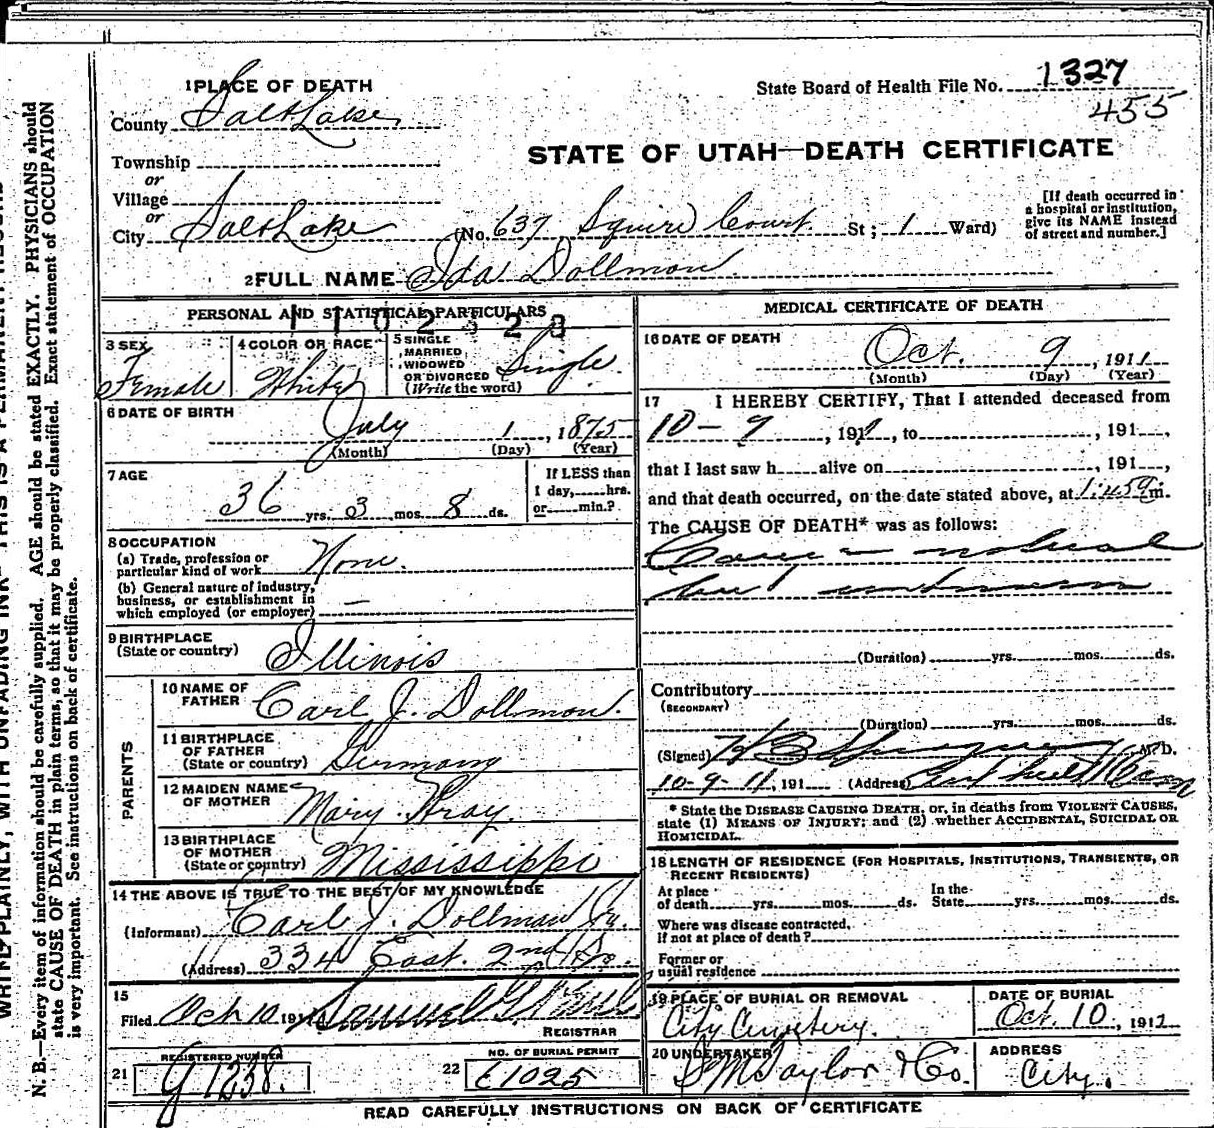 1 PLACE OF DEATH
State Board of Health File No. 1327
455
County Salt Lake
STATE OF UTAH—DEATH CERTIFICATE
Township
or
Village
or
City Salt Lake (No. 637 Squire Court. St; 1 Ward)
[If death occurred in a hospital or institution, give its NAME instead of street and number.]
2 FULL NAME Ida Dollmon
PERSONAL AND STATISTICAL PARTICULARS
1102328
3 SEX
Female
4 COLOR OR RACE
White
5 SINGLE, MARRIED, WIDOWED OR DIVORCED (Write the word)
Single.
6 DATE OF BIRTH
July 1, 1875
(Month) (Day) (Year)
7 AGE
36 yrs. 3 mos. 8 ds.
If LESS than 1 day, hrs. or min.?
8 OCCUPATION
(a) Trade, profession or particular kind of work None.
(b) General nature of industry, business, or establishment in which employed (or employer) —
9 BIRTHPLACE
(State or country) Illinois
PARENTS
10 NAME OF FATHER Carl J. Dollmon.
11 BIRTHPLACE OF FATHER (State or country) Germany
12 MAIDEN NAME OF MOTHER Mary Gray.
13 BIRTHPLACE OF MOTHER (State or country) Mississippi
14 THE ABOVE IS TRUE TO THE BEST OF MY KNOWLEDGE
(Informant) Carl J. Dollman Jr.
(Address) 334 East. 2nd So.
15
Filed Oct 10 191 Samuel G.
REGISTRAR
21 REGISTERED NUMBER
G 1238.
22 NO. OF BURIAL PERMIT
E1025
MEDICAL CERTIFICATE OF DEATH
16 DATE OF DEATH
Oct. 9, 1911
(Month) (Day) (Year)
17 I HEREBY CERTIFY, That I attended deceased from
10-9, 191, to, 191,
that I last saw h alive on, 191,
and that death occurred, on the date stated above, at 1:45 m.
The CAUSE OF DEATH* was as follows:
Cause natural
but unknown
(Duration) yrs. mos. ds.
Contributory
(SECONDARY)
(Duration) yrs. mos. ds.
(Signed) M.D.
10-9-11, 191 (Address)
* State the DISEASE CAUSING DEATH, or, in deaths from VIOLENT CAUSES, state (1) MEANS OF INJURY; and (2) whether ACCIDENTAL, SUICIDAL OR HOMICIDAL.
18 LENGTH OF RESIDENCE (FOR HOSPITALS, INSTITUTIONS, TRANSIENTS, OR RECENT RESIDENTS)
At place of death yrs. mos. ds. In the State yrs. mos. ds.
Where was disease contracted, if not at place of death?
Former or usual residence
19 PLACE OF BURIAL OR REMOVAL
City Cemetery.
DATE OF BURIAL
Oct. 10, 1912
20 UNDERTAKER
S M Taylor & Co.
ADDRESS
City.
READ CAREFULLY INSTRUCTIONS ON BACK OF CERTIFICATE
N. B.—Every item of information should be carefully supplied. AGE should be stated EXACTLY. PHYSICIANS should
state CAUSE OF DEATH in plain terms, so that it may be properly classified. Exact statement of OCCUPATION
is very important. See instructions on back of certificate.